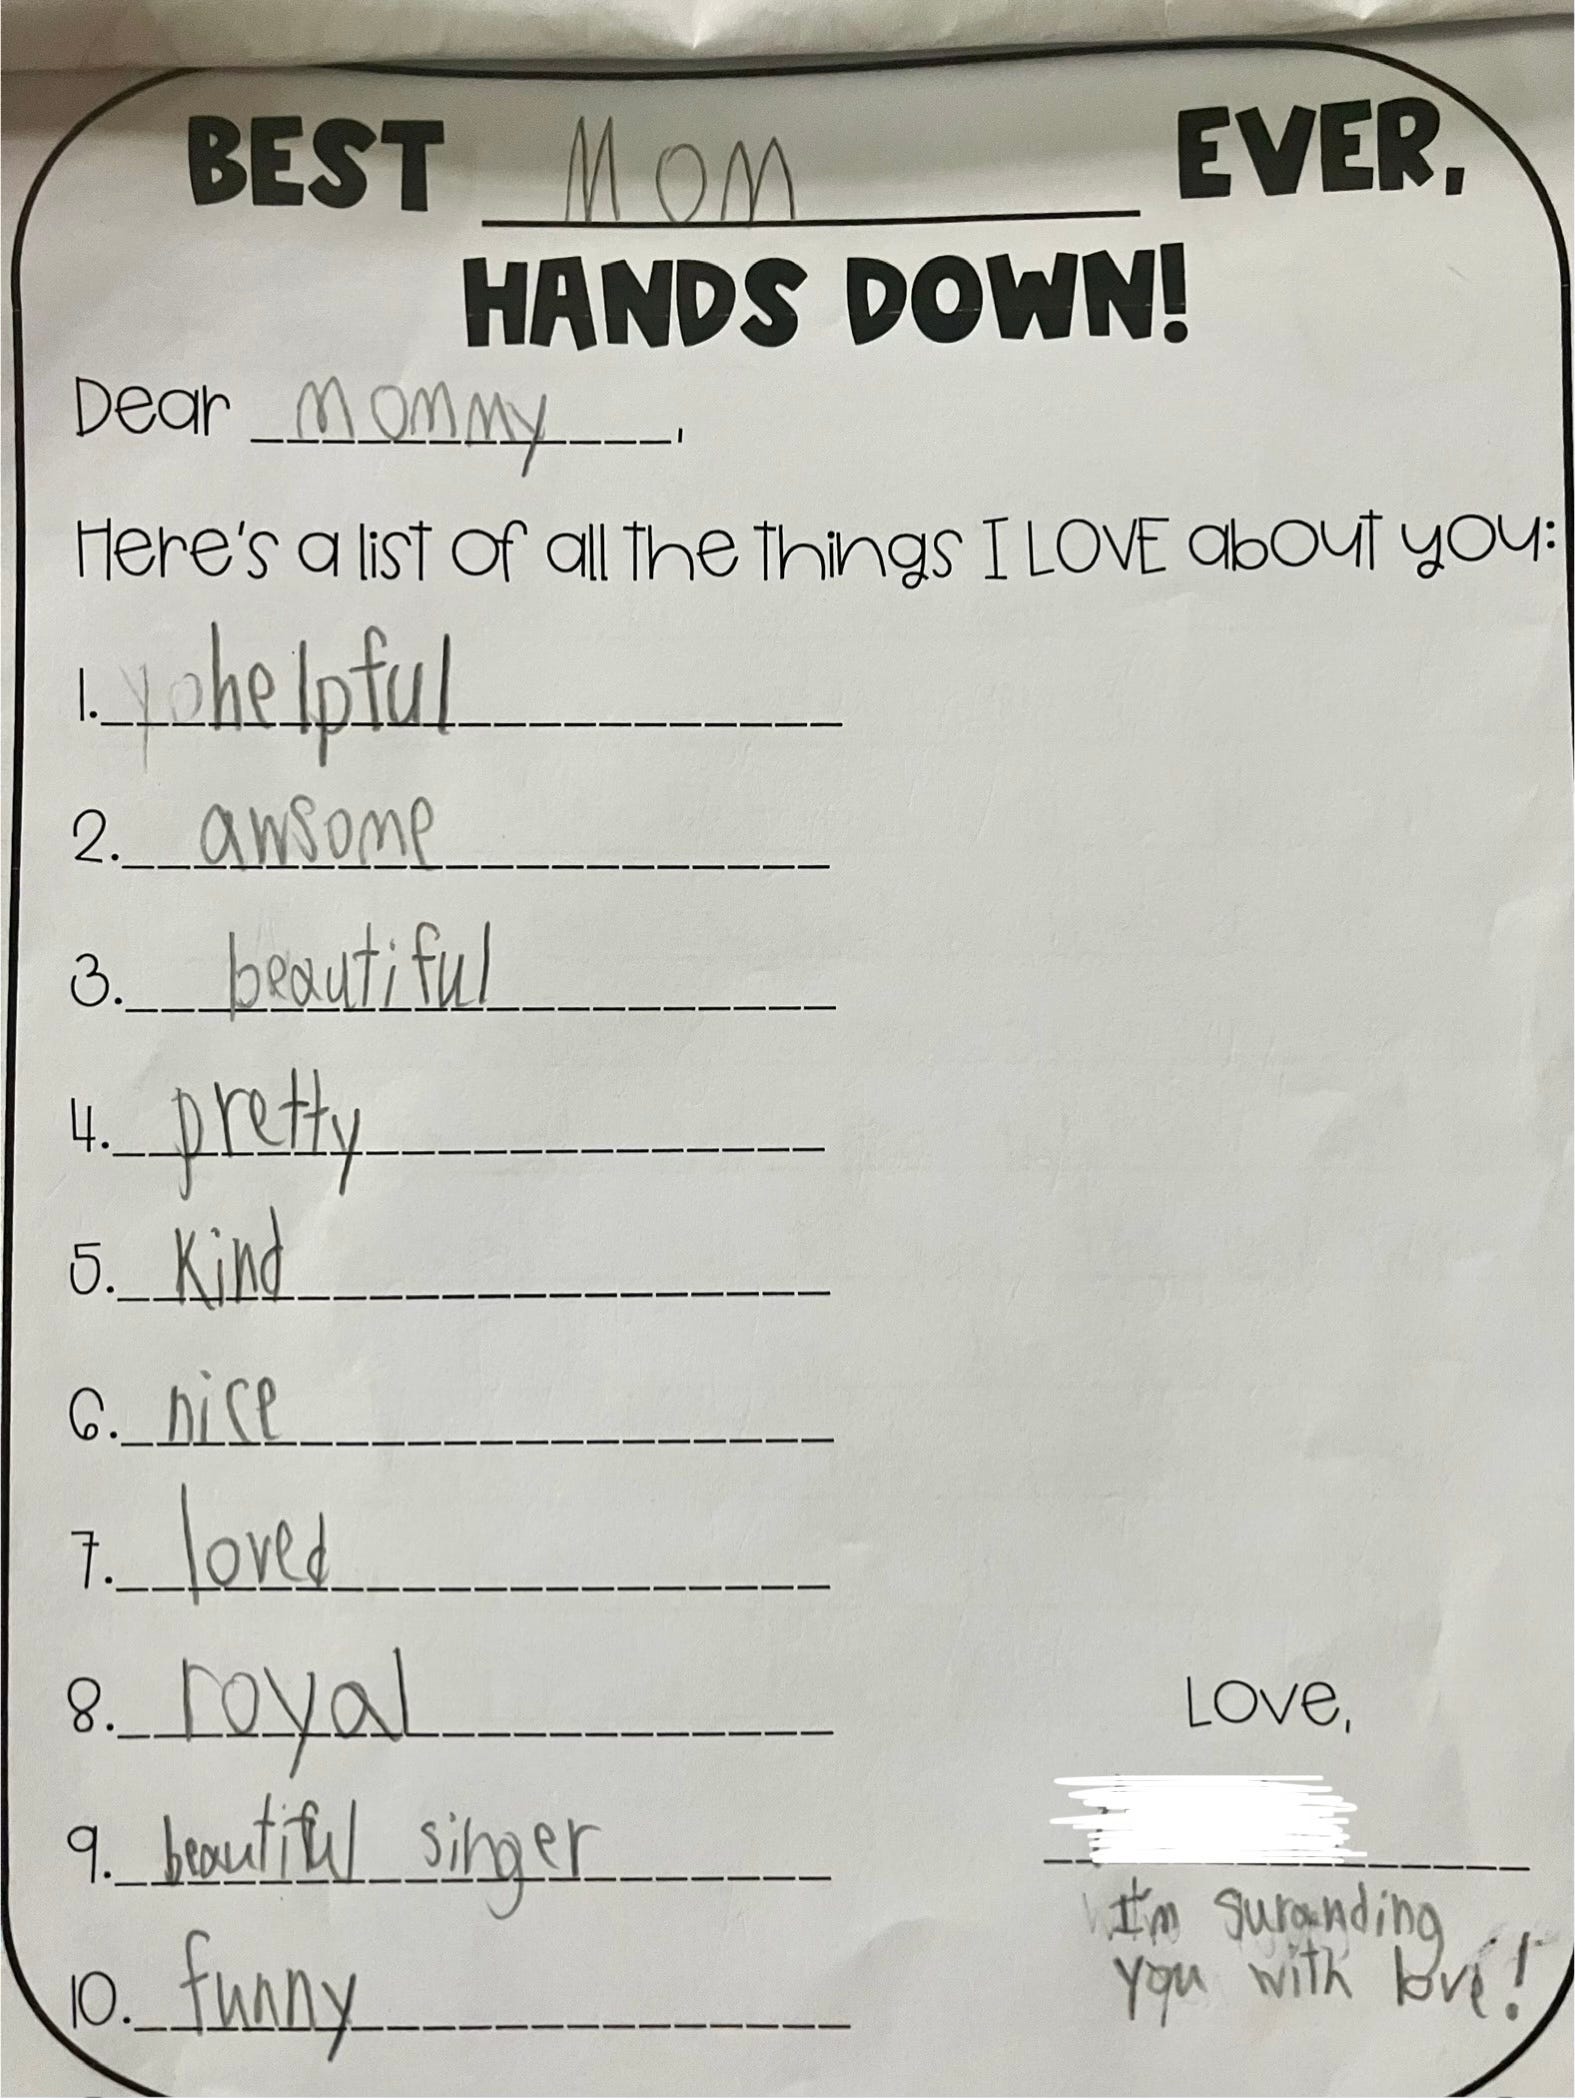 BEST Mom EVER,
HANDS DOWN!
Dear Mommy,
Here's a list of all the things I LOVE about you:
1. helpful
2. awsome
3. beautiful
4. pretty
5. Kind
6. nice
7. loved
8. royal
9. beautiful singer
10. funny
Love,
I'm suranding
you with love!